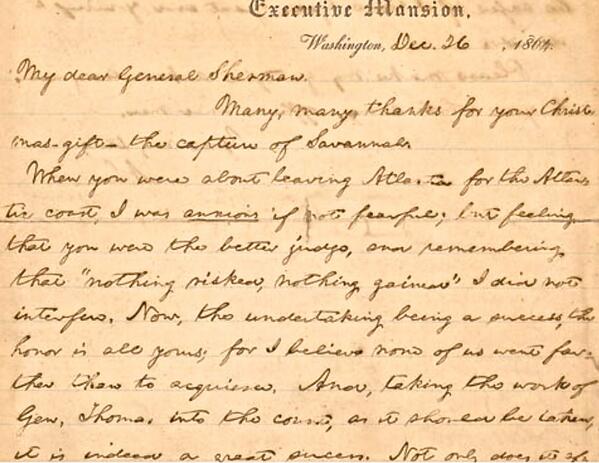 Executive Mansion,
Washington, Dec. 26, 1864.
My dear General Sherman.
Many, many, thanks for your Christ-
mas-gift— the capture of Savannah.
When you were about leaving Atlanta for the Atlan-
tic coast, I was anxious, if not fearful; but feeling
that you were the better judge, and remembering
that "nothing risked, nothing gained" I did not
interfere. Now, the undertaking being a success, the
honor is all yours; for I believe none of us went far-
ther than to acquiesce. And, taking the work of
Gen. Thomas into the count, as it should be taken,
it is indeed a great success. Not only does it